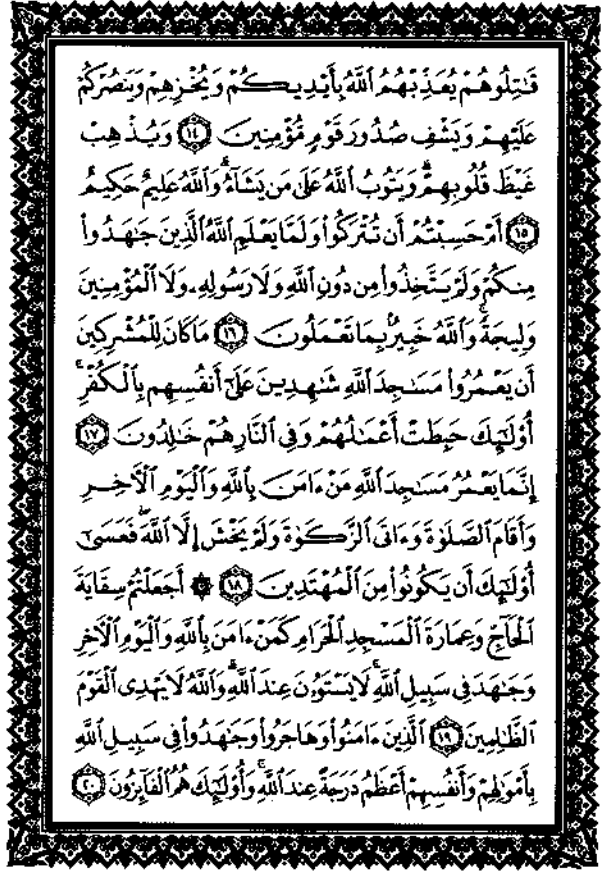 قَٰتِلُوهُمْ يُعَذِّبْهُمُ ٱللَّهُ بِأَيْدِيكُمْ وَيُخْزِهِمْ وَيَنصُرْكُمْ
عَلَيْهِمْ وَيَشْفِ صُدُورَ قَوْمٍ مُّؤْمِنِينَ ١٤ وَيُذْهِبْ
غَيْظَ قُلُوبِهِمْ ۗ وَيَتُوبُ ٱللَّهُ عَلَىٰ مَن يَشَآءُ ۗ وَٱللَّهُ عَلِيمٌ حَكِيمٌ
١٥ أَمْ حَسِبْتُمْ أَن تُتْرَكُوا۟ وَلَمَّا يَعْلَمِ ٱللَّهُ ٱلَّذِينَ جَٰهَدُوا۟
مِنكُمْ وَلَمْ يَتَّخِذُوا۟ مِن دُونِ ٱللَّهِ وَلَا رَسُولِهِۦ وَلَا ٱلْمُؤْمِنِينَ
وَلِيجَةً ۚ وَٱللَّهُ خَبِيرٌۢ بِمَا تَعْمَلُونَ ١٦ مَا كَانَ لِلْمُشْرِكِينَ
أَن يَعْمُرُوا۟ مَسَٰجِدَ ٱللَّهِ شَٰهِدِينَ عَلَىٰٓ أَنفُسِهِم بِٱلْكُفْرِ ۚ
أُو۟لَٰٓئِكَ حَبِطَتْ أَعْمَٰلُهُمْ وَفِى ٱلنَّارِ هُمْ خَٰلِدُونَ ١٧
إِنَّمَا يَعْمُرُ مَسَٰجِدَ ٱللَّهِ مَنْ ءَامَنَ بِٱللَّهِ وَٱلْيَوْمِ ٱلْءَاخِرِ
وَأَقَامَ ٱلصَّلَوٰةَ وَءَاتَى ٱلزَّكَوٰةَ وَلَمْ يَخْشَ إِلَّا ٱللَّهَ ۖ فَعَسَىٰٓ
أُو۟لَٰٓئِكَ أَن يَكُونُوا۟ مِنَ ٱلْمُهْتَدِينَ ١٨ ۞ أَجَعَلْتُمْ سِقَايَةَ
ٱلْحَآجِّ وَعِمَارَةَ ٱلْمَسْجِدِ ٱلْحَرَامِ كَمَنْ ءَامَنَ بِٱللَّهِ وَٱلْيَوْمِ ٱلْءَاخِرِ
وَجَٰهَدَ فِى سَبِيلِ ٱللَّهِ ۚ لَا يَسْتَوُۥنَ عِندَ ٱللَّهِ ۗ وَٱللَّهُ لَا يَهْدِى ٱلْقَوْمَ
ٱلظَّٰلِمِينَ ١٩ ٱلَّذِينَ ءَامَنُوا۟ وَهَاجَرُوا۟ وَجَٰهَدُوا۟ فِى سَبِيلِ ٱللَّهِ
بِأَمْوَٰلِهِمْ وَأَنفُسِهِمْ أَعْظَمُ دَرَجَةً عِندَ ٱللَّهِ ۚ وَأُو۟لَٰٓئِكَ هُمُ ٱلْفَآئِزُونَ ٢٠